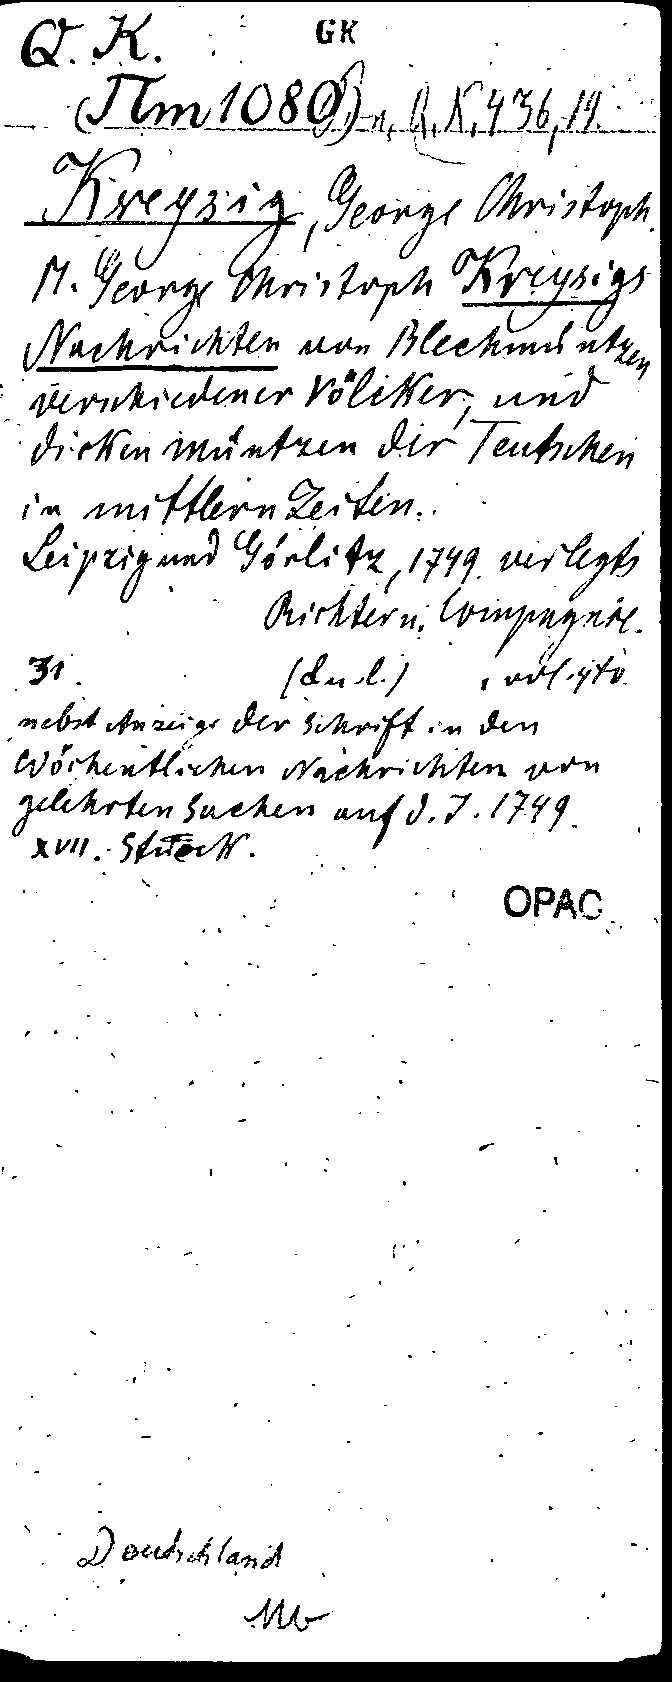 Q. K.
GK
(Πm 1080) n. Q. N. 436, 19.
Kreysig, George Christoph.
M. George Christoph Kreysigs
Nachrichten von Blechmüntzen
verschiedener Völcker, und
dicken Müntzen der Teutschen
in mittlern Zeiten.
Leipzig und Görlitz, 1749. verlegts
Richter u. Compagnie.
31. (d. u. l.)
nebst Anzeige der Schrift in den
Wöchentlichen Nachrichten von
gelehrten Sachen auf d. J. 1749.
XVII. Stück.
OPAC
Deutschland